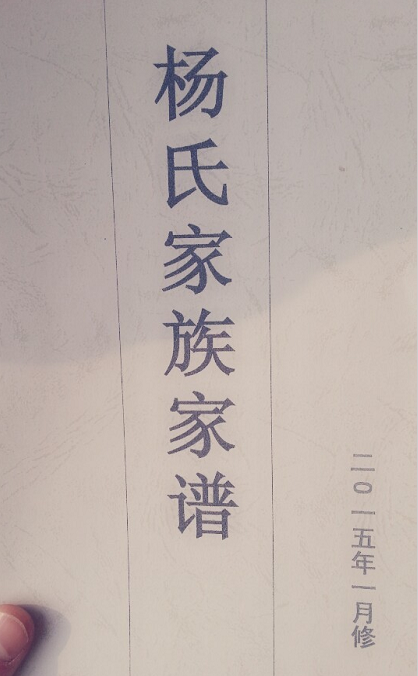 杨氏家族家谱
二0一五年一月修